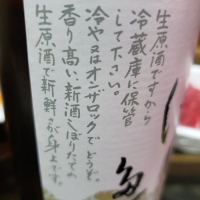 生原酒ですから
冷蔵庫に保管
して下さい。
冷や又はオンザロックでどうぞ。
香り高い、新酒しぼりたての
生原酒で新鮮さが身上です。